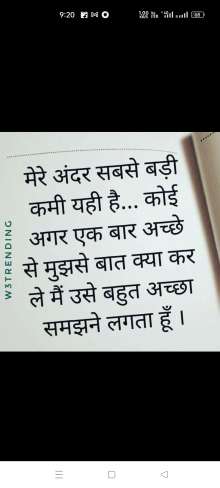 9:20
मेरे अंदर सबसे बड़ी
कमी यही है... कोई
अगर एक बार अच्छे
से मुझसे बात क्या कर
ले मैं उसे बहुत अच्छा
समझने लगता हूँ ।
W3TRENDING